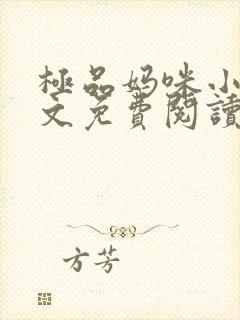 極品妈咪小
文免費閱讀
方芳